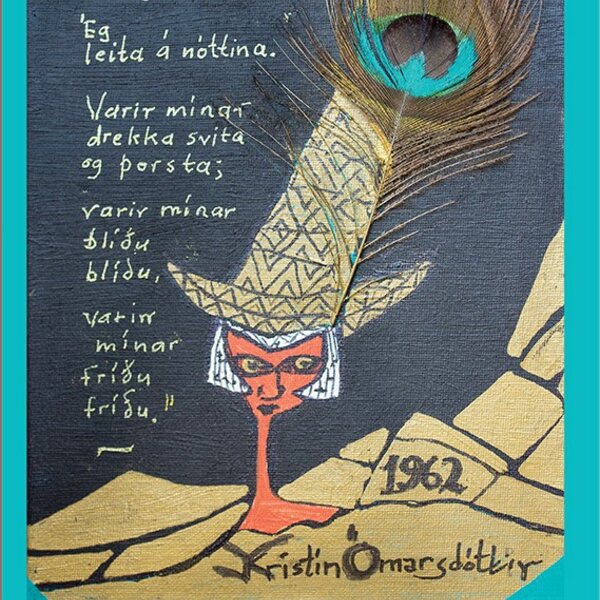 'Eg
leita á nóttina.
Varir mínar
drekka svita
og þorsta;
varir mínar
blíðu
blíðu,
varir
mínar
fríðu
fríðu."
1962
Kristín Ómarsdóttir